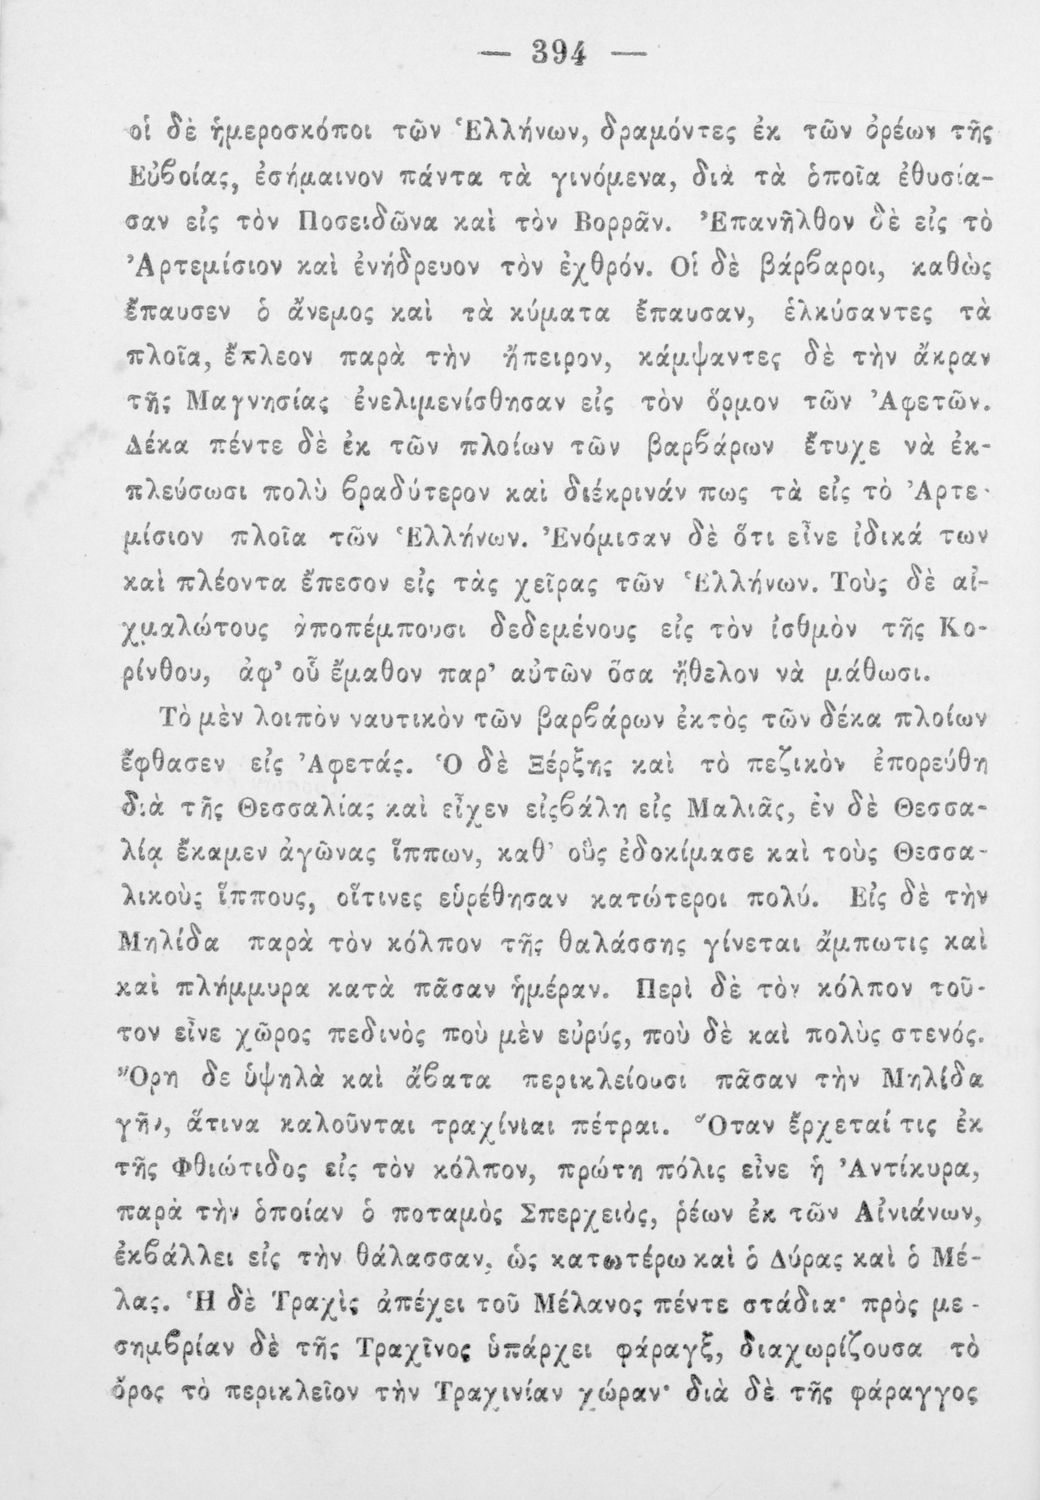 — 394 —
οἱ δὲ ἡμεροσκόποι τῶν Ἑλλήνων, δραμόντες ἐκ τῶν ὀρέων τῆς
Εὐβοίας, ἐσήμαινον πάντα τὰ γινόμενα, διὰ τὰ ὁποῖα ἐθυσία-
σαν εἰς τὸν Ποσειδῶνα καὶ τὸν Βορρᾶν. Ἐπανῆλθον δὲ εἰς τὸ
Ἀρτεμίσιον καὶ ἐνήδρευον τὸν ἐχθρόν. Οἱ δὲ βάρϐαροι, καθὼς
ἔπαυσεν ὁ ἄνεμος καὶ τὰ κύματα ἔπαυσαν, ἑλκύσαντες τὰ
πλοῖα, ἔπλεον παρὰ τὴν ἤπειρον, κάμψαντες δὲ τὴν ἄκραν
τῆς Μαγνησίας ἐνελιμενίσθησαν εἰς τὸν ὅρμον τῶν Ἀφετῶν.
Δέκα πέντε δὲ ἐκ τῶν πλοίων τῶν βαρϐάρων ἔτυχε νὰ ἐκ-
πλεύσωσι πολὺ ϐραδύτερον καὶ διέκρινάν πως τὰ εἰς τὸ Ἀρτε-
μίσιον πλοῖα τῶν Ἑλλήνων. Ἐνόμισαν δὲ ὅτι εἶνε ἰδικά των
καὶ πλέοντα ἔπεσον εἰς τὰς χεῖρας τῶν Ἑλλήνων. Τοὺς δὲ αἰ-
χμαλώτους ἀποπέμπουσι δεδεμένους εἰς τὸν ἰσθμὸν τῆς Κο-
ρίνθου, ἀφ’ οὗ ἔμαθον παρ’ αὐτῶν ὅσα ἤθελον νὰ μάθωσι.
Τὸ μὲν λοιπὸν ναυτικὸν τῶν βαρϐάρων ἐκτὸς τῶν δέκα πλοίων
ἔφθασεν εἰς Ἀφετάς. Ὁ δὲ Ξέρξης καὶ τὸ πεζικὸν ἐπορεύθη
διὰ τῆς Θεσσαλίας καὶ εἶχεν εἰςϐάλη εἰς Μαλιᾶς, ἐν δὲ Θεσσα-
λίᾳ ἔκαμεν ἀγῶνας ἵππων, καθ’ οὓς ἐδοκίμασε καὶ τοὺς Θεσσα-
λικοὺς ἵππους, οἵτινες εὑρέθησαν κατώτεροι πολύ. Εἰς δὲ τὴν
Μηλίδα παρὰ τὸν κόλπον τῆς θαλάσσης γίνεται ἄμπωτις καὶ
καὶ πλήμμυρα κατὰ πᾶσαν ἡμέραν. Περὶ δὲ τὸν κόλπον τοῦ-
τον εἶνε χῶρος πεδινὸς ποὺ μὲν εὐρύς, ποὺ δὲ καὶ πολὺς στενός.
Ὄρη δε ὑψηλὰ καὶ ἄϐατα περικλείουσι πᾶσαν τὴν Μηλίδα
γῆν, ἅτινα καλοῦνται τραχίνιαι πέτραι. Ὅταν ἔρχεταί τις ἐκ
τῆς Φθιώτιδος εἰς τὸν κόλπον, πρώτη πόλις εἶνε ἡ Ἀντίκυρα,
παρὰ τὴν ὁποίαν ὁ ποταμὸς Σπερχειὸς, ῥέων ἐκ τῶν Αἰνιάνων,
ἐκϐάλλει εἰς τὴν θάλασσαν, ὡς κατωτέρω καὶ ὁ Δύρας καὶ ὁ Μέ-
λας. Ἡ δὲ Τραχὶς ἀπέχει τοῦ Μέλανος πέντε στάδια· πρὸς με-
σημϐρίαν δὲ τῆς Τραχῖνος ὑπάρχει φάραγξ, διαχωρίζουσα τὸ
ὄρος τὸ περικλεῖον τὴν Τραχινίαν χώραν· διὰ δὲ τῆς φάραγγος